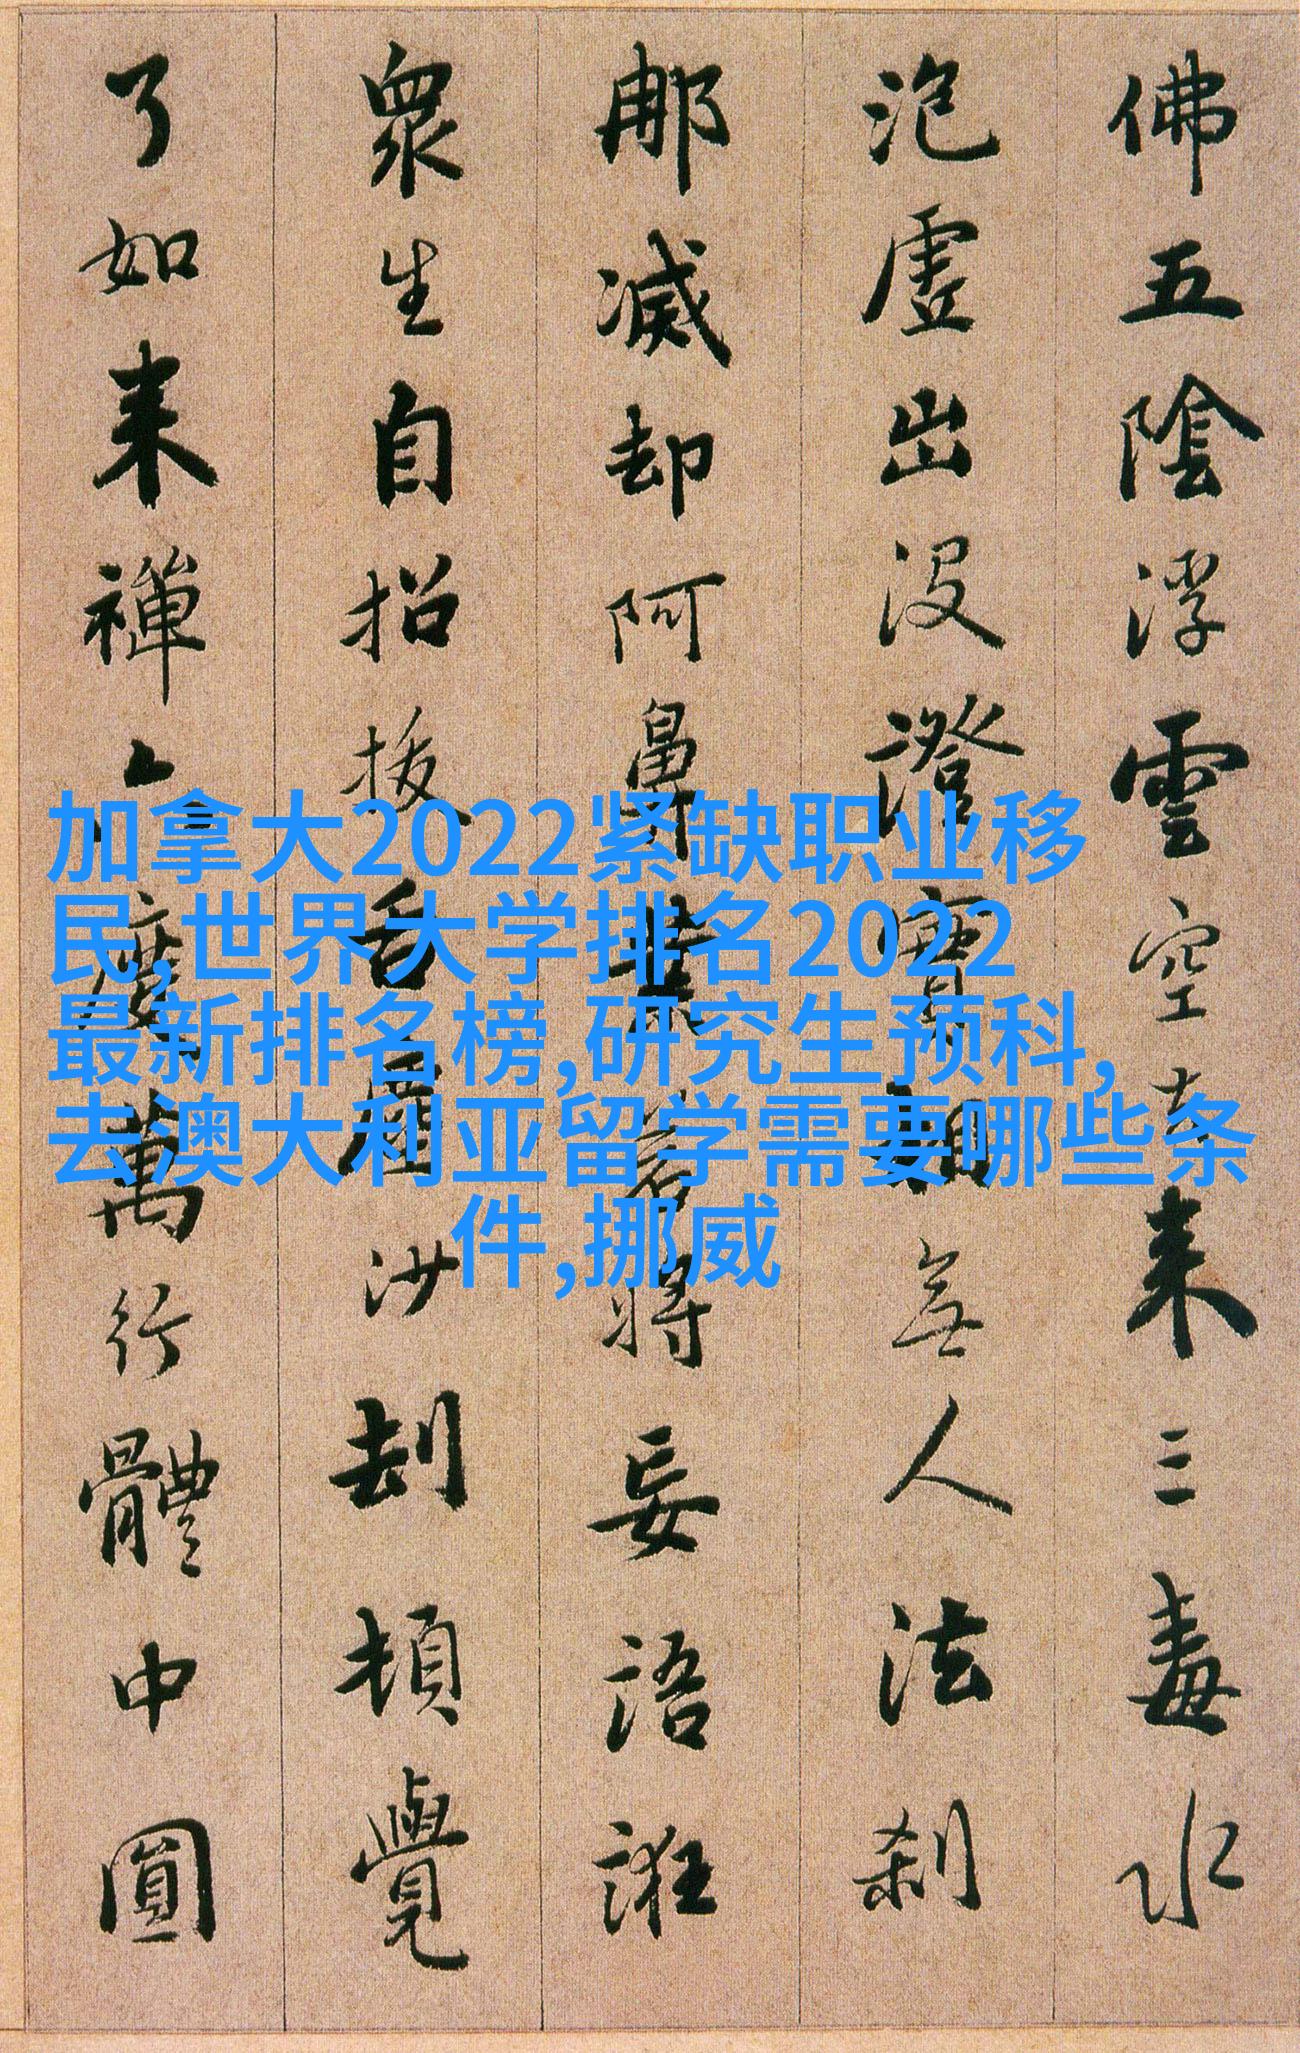 佛五陰浮雲空去来三毒水
泡虛出没證實相無人法刹
那滅却阿鼻業若將妄語誑
衆生自招拔舌塵沙劫頓覺
了如来禪六度萬行體中圓
加拿大2022紧缺职业移
民,世界大学排名2022
最新排名榜,研究生预科,
去澳大利亚留学需要哪些条
件,挪威